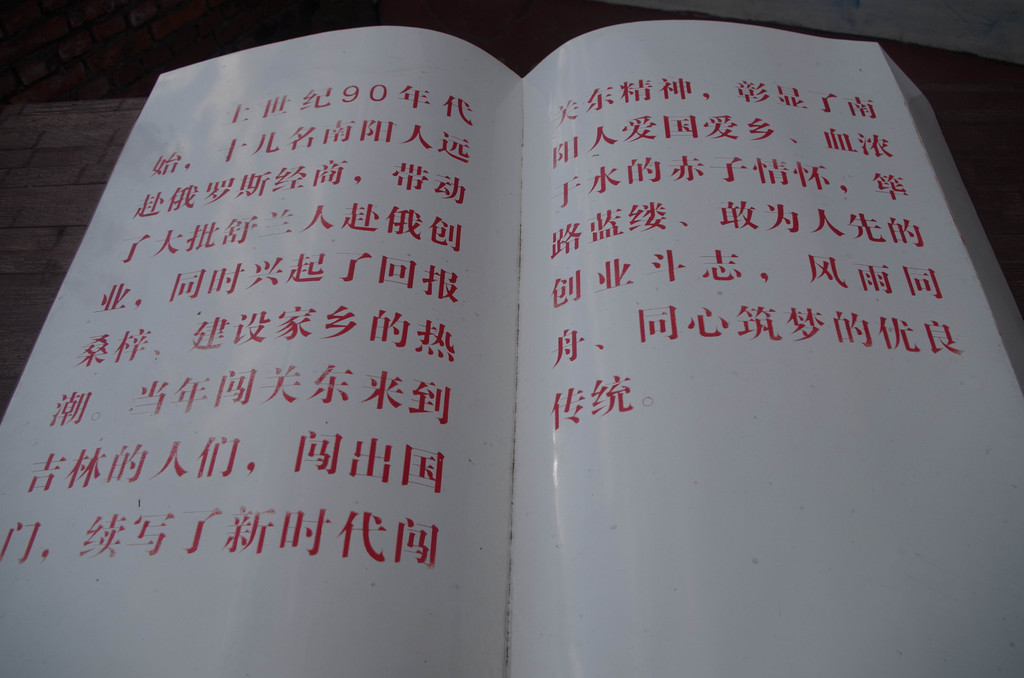 上世纪90年代
始，十几名南阳人远
赴俄罗斯经商，带动
了大批舒兰人赴俄创
业，同时兴起了回报
桑梓、建设家乡的热
潮。当年闯关东来到
吉林的人们，闯出国
门，续写了新时代闯
关东精神，彰显了南
阳人爱国爱乡、血浓
于水的赤子情怀，筚
路蓝缕、敢为人先的
创业斗志，风雨同
舟、同心筑梦的优良
传统。